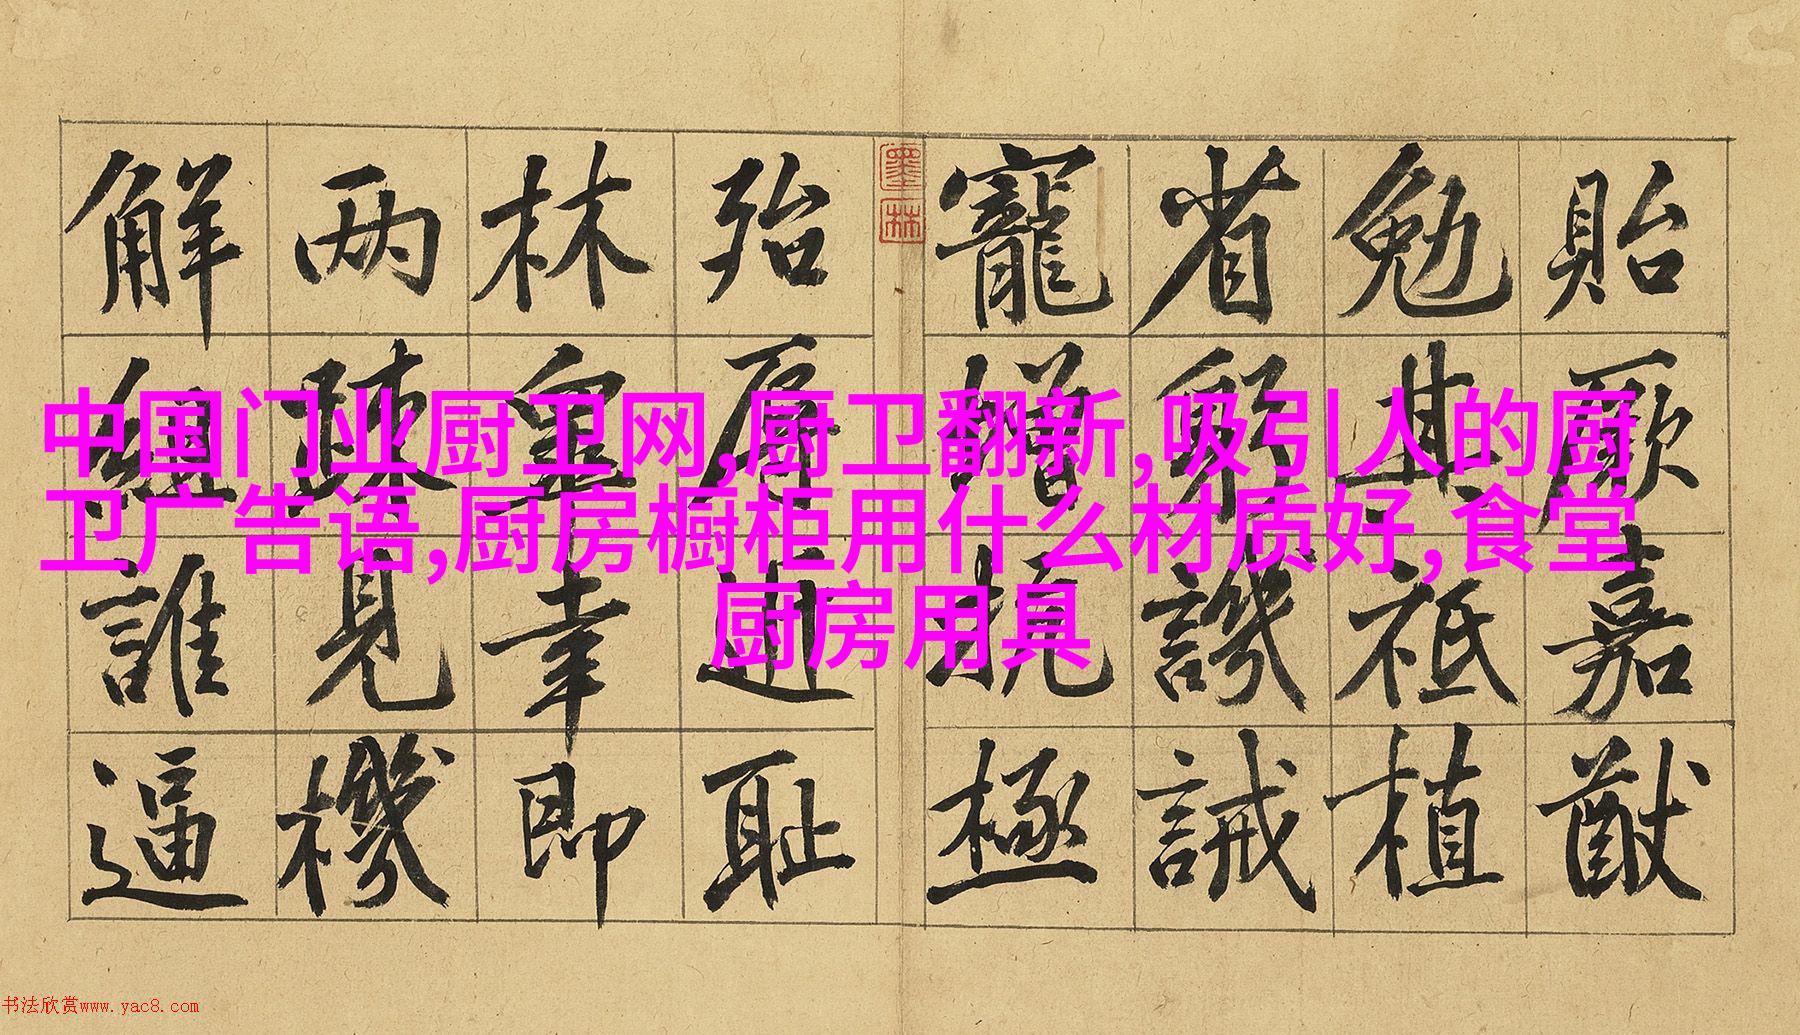 貽厥嘉猷
勉其祗植
省躬譏誡
寵增抗極
墨林
殆辱近恥
林皐幸即
两疎見機
解組誰逼
中国门业厨卫网,厨卫翻新,吸引人的厨
卫广告语,厨房橱柜用什么材质好,食堂
厨房用具
书法欣赏www.yac8.com